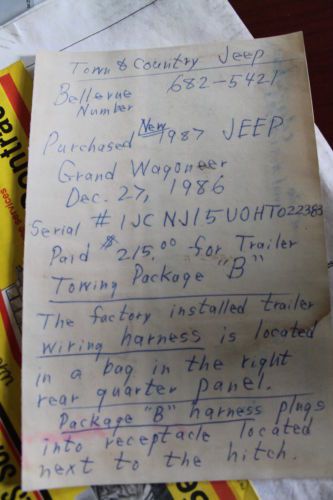 Town & Country Jeep
Bellevue 682-5421
Number
Purchased New 1987 JEEP
Grand Wagoneer
Dec. 27, 1986
Serial # 1JCNJ15U0HT022383
Paid $215.00 for Trailer
Towing Package "B"
The factory installed trailer
wiring harness is located
in a bag in the right
rear quarter panel.
Package "B" harness plugs
into receptacle located
next to the hitch.